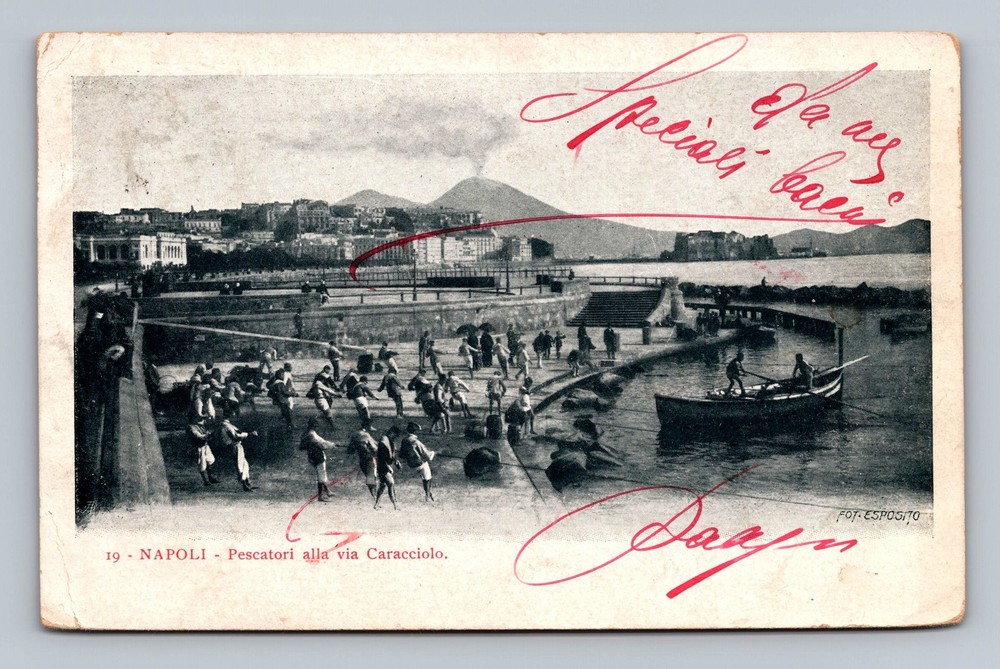 Speciali
baci
FOT. ESPOSITO
19 - NAPOLI - Pescatori alla via Caracciolo.